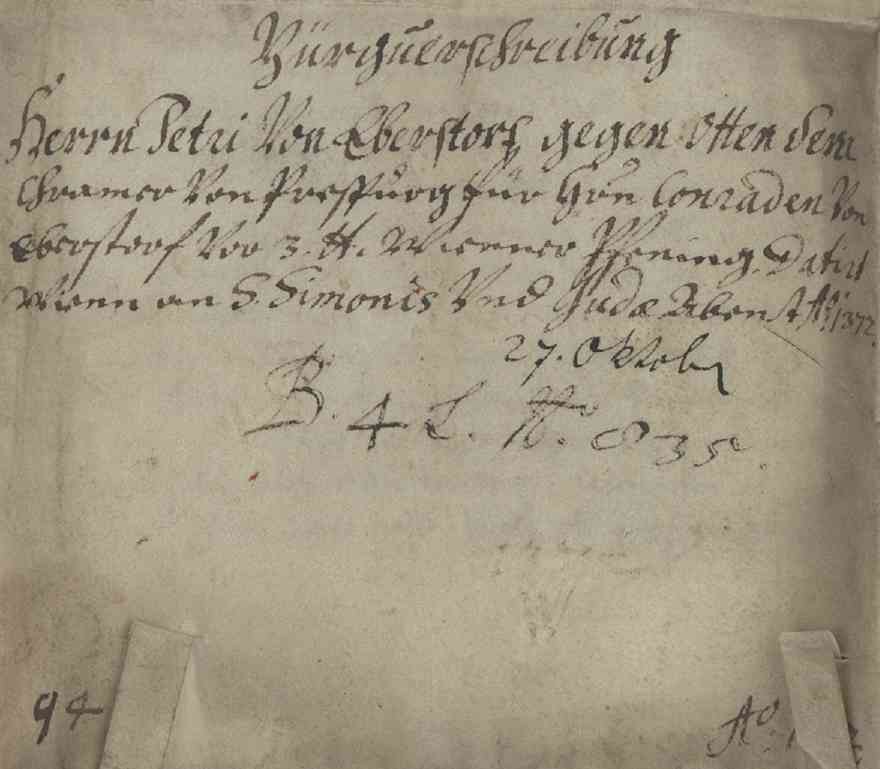 Bürguerschreibung
Herrn Petri Von Eberstorf gegen Otten dem
Chramer Von Prespurg für Hrn Conraden Von
Eberstorf Vor 3. ℔. Wienner Pfening. Datirt
Wienn an S. Simonis Vnd Judæ Abent Ao. 1372.
27. Oktob
B. 4 L. N. 835.
94
Ao.